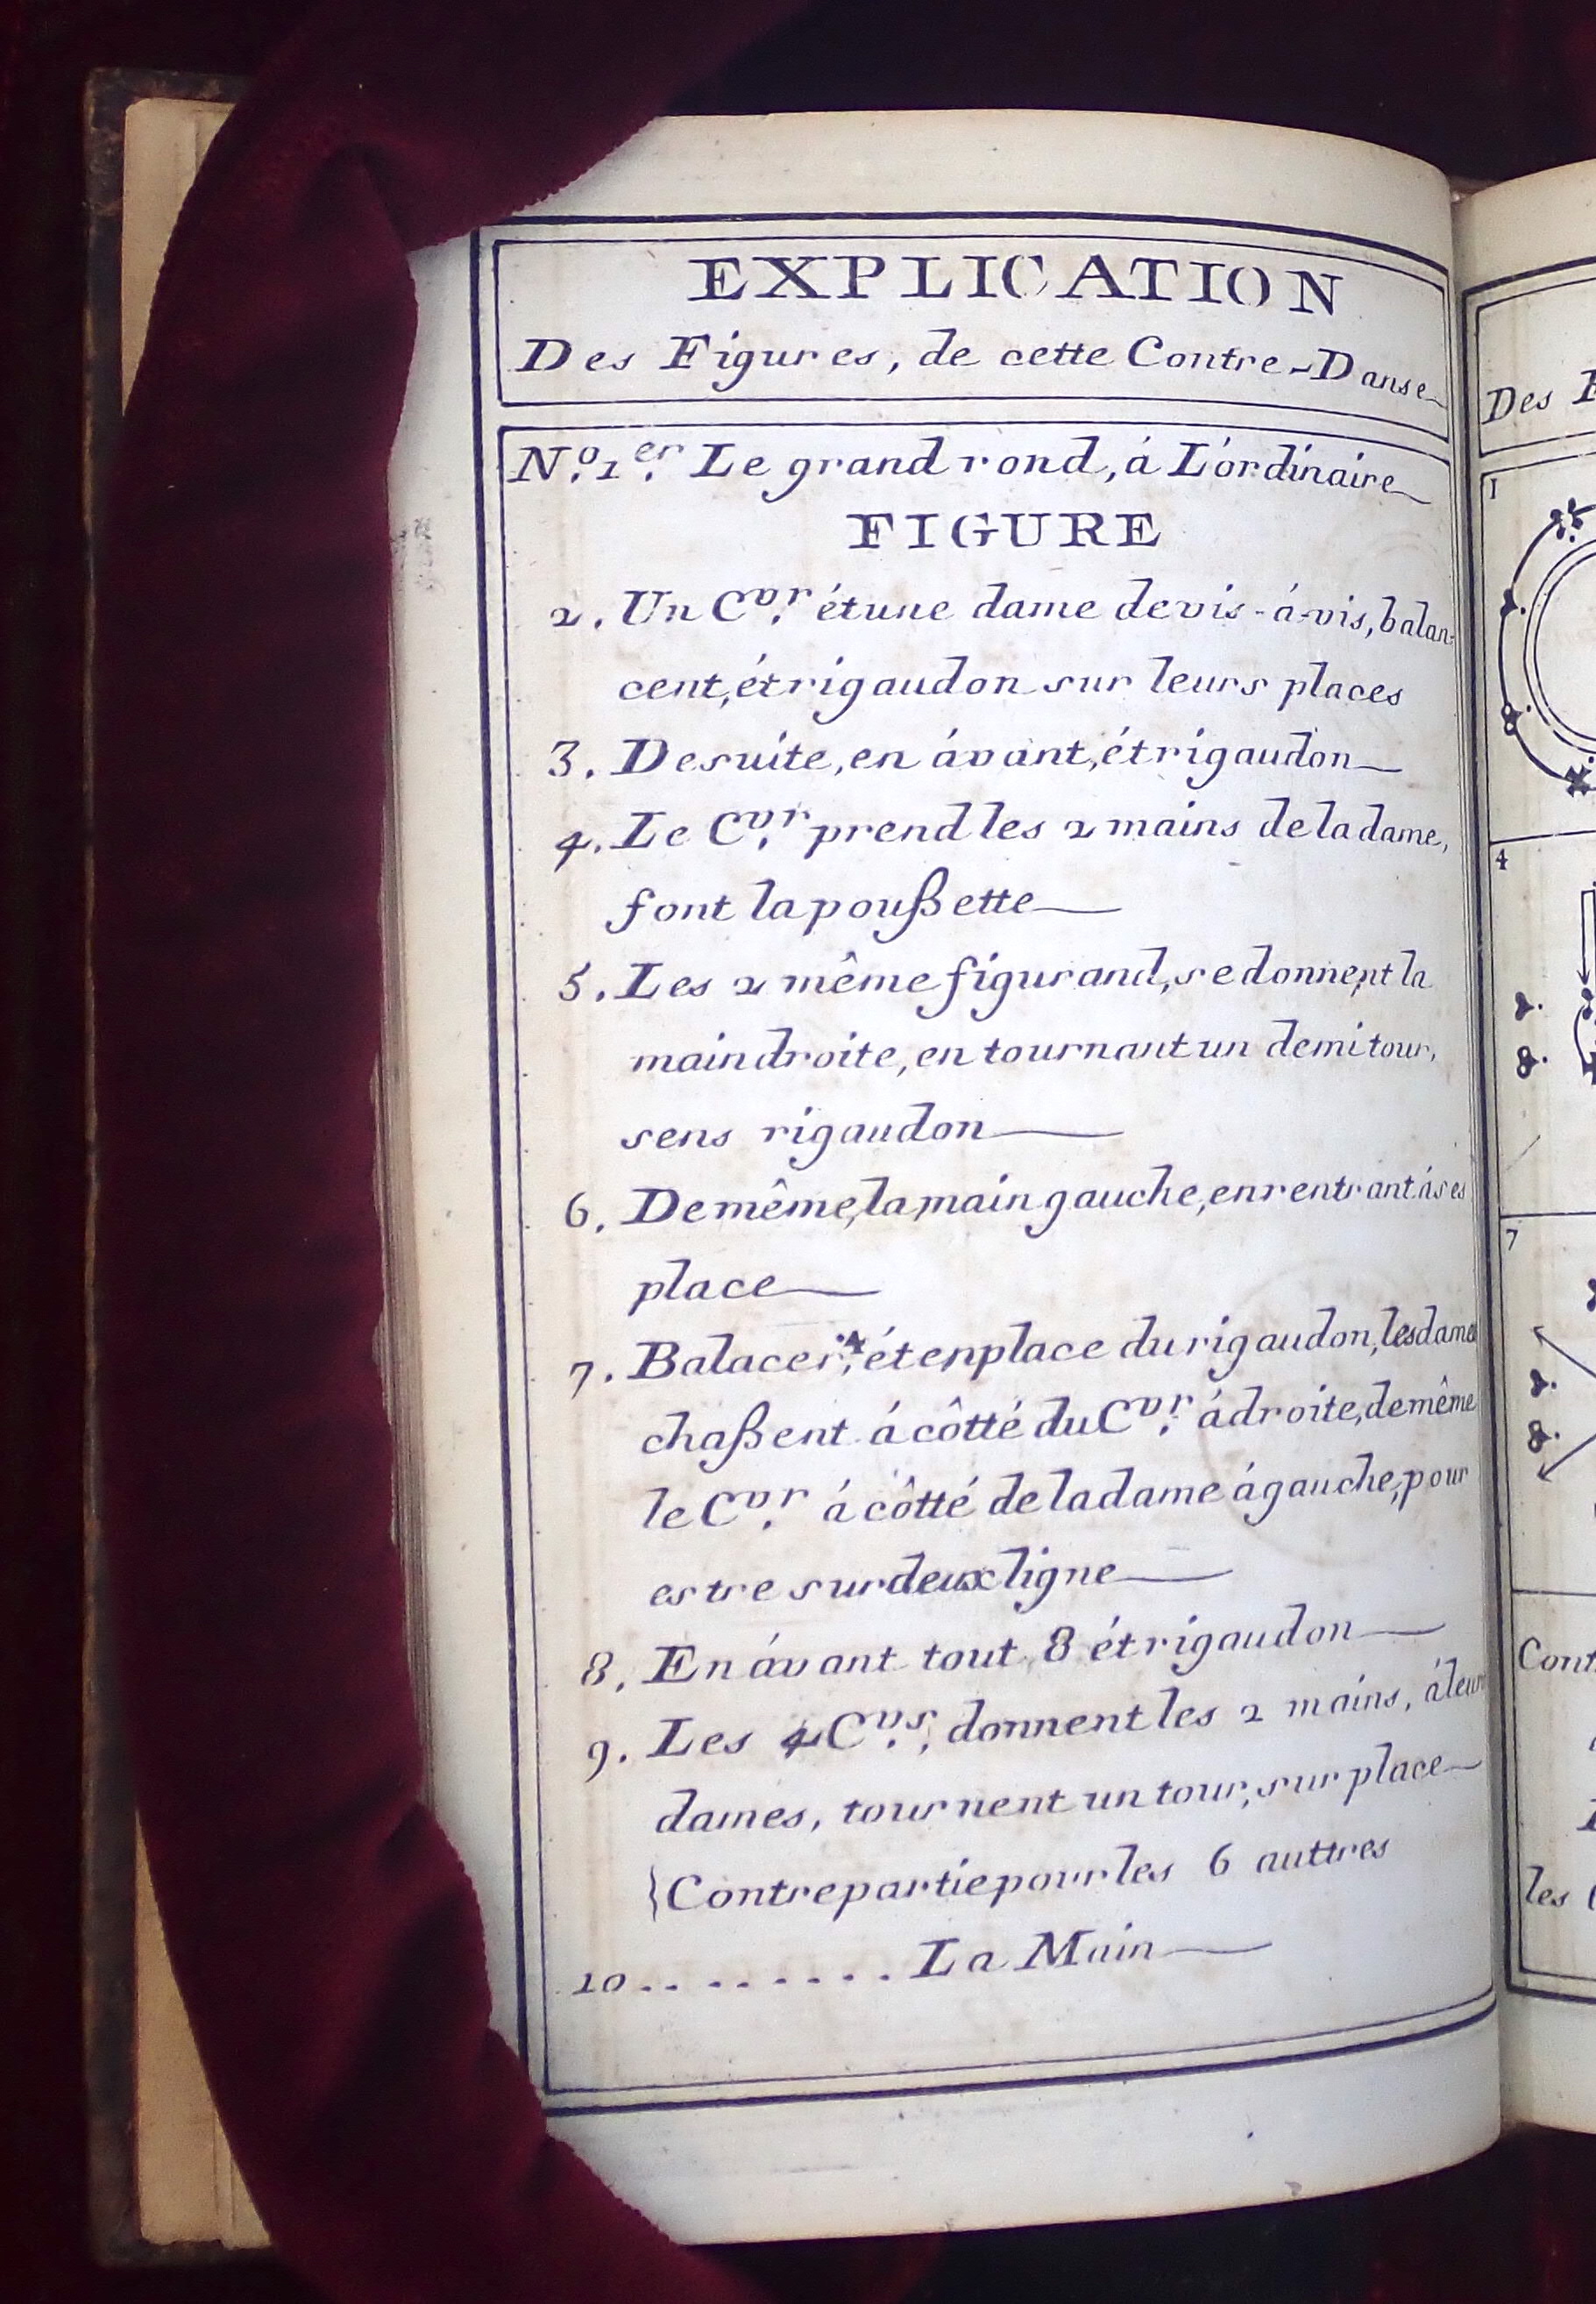 EXPLICATION
Des Figures, de cette Contre-Danse
N.º 1.er Le grand rond, á L'órdinaire
FIGURE
2. Un C.vr ét une dame de vis-á-vis, balan-
cent, ét rigaudon sur leurs places
3. De suite, en ávant, ét rigaudon
4. Le C.vr prend les 2 mains de la dame,
font la poußette
5. Les 2 même figurand, se donnent la
main droite, en tournant un demi tour,
sens rigaudon
6. De même, la main gauche, en rentrant á ses
place
7. Balacer, ét en place du rigaudon, les dames
chaßent á côtté du C.vr á droite, de même
le C.vr á côtté de la dame á gauche, pour
estre sur deux ligne
8. En ávant tout 8 ét rigaudon
9. Les 4 C.vs, donnent les 2 mains, á leur
dames, tournent un tour, sur place
}Contre partie pour les 6 auttres
10......... La Main
Des
1
4
7
Cont
les